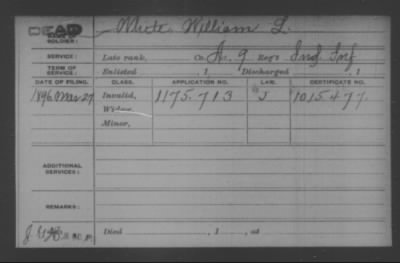 DEAD
SOLDIER: William L.
SERVICE: Late rank, Co. A. 9 Reg't Ind. Inf
TERM OF SERVICE: Enlisted , 1 Discharged , 1
DATE OF FILING. CLASS. APPLICATION NO. LAW. CERTIFICATE NO.
1896 Mar 27 Invalid, 1175.713 J 1015.477.
Widow,
Minor,
ADDITIONAL SERVICES:
REMARKS:
Died , 1 , at